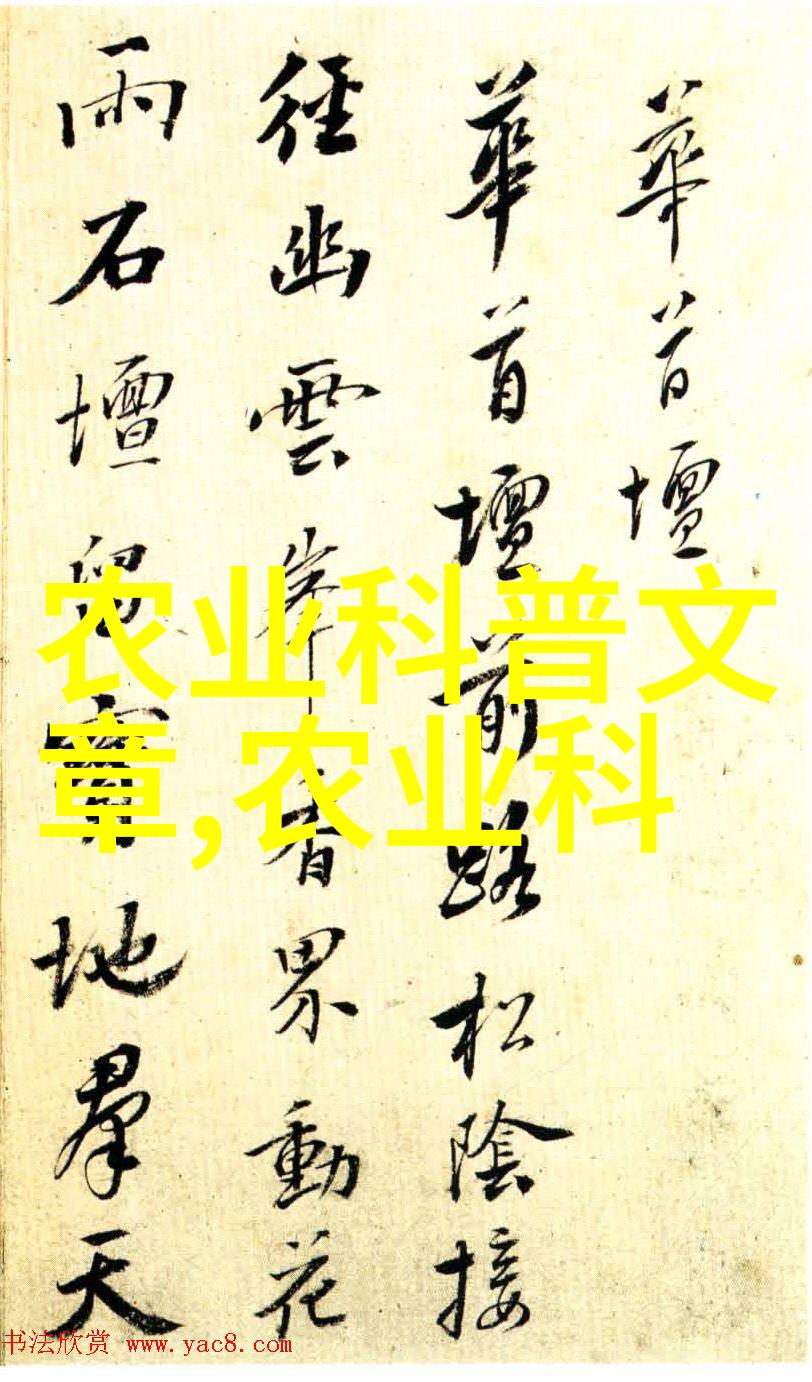 華首壇
華首壇前路松陰接
徑幽雲峯香界動花
雨石壇留寶地群天
农业科普文
章,农业科
书法欣赏 www.yac8.com